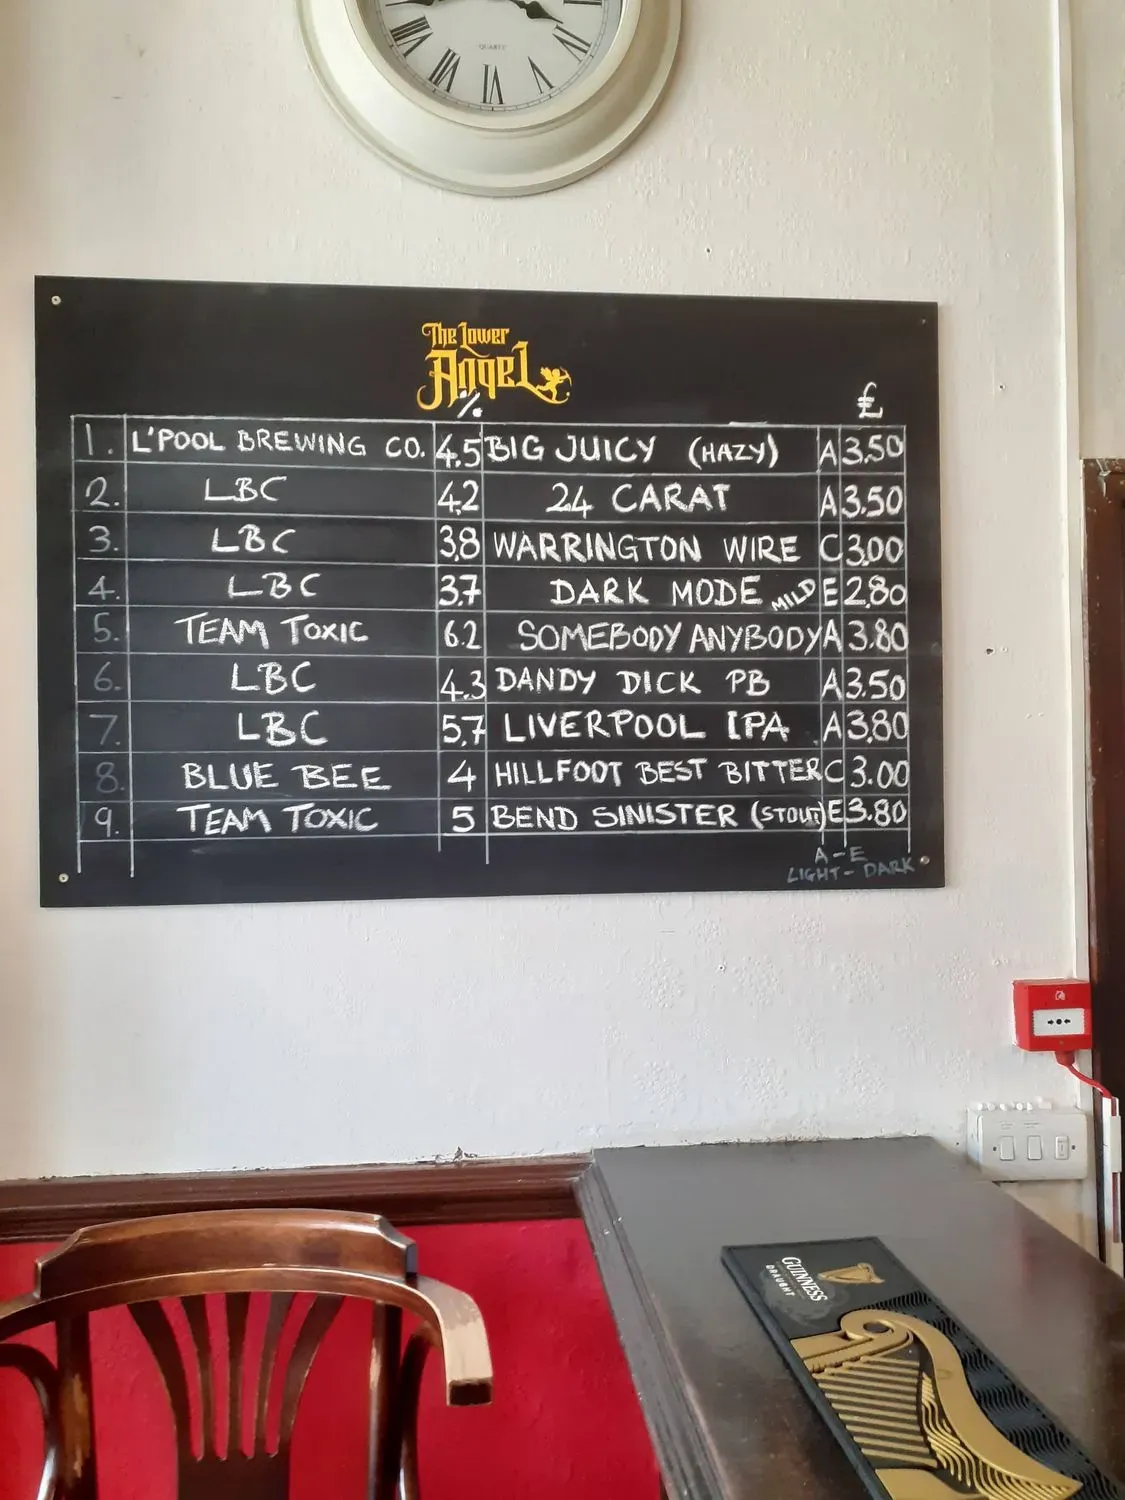 QUARTZ
The Lower
Angel
% £
1. L'POOL BREWING CO. 4.5 BIG JUICY (HAZY) A 3.50
2. LBC 4.2 24 CARAT A 3.50
3. LBC 3.8 WARRINGTON WIRE C 3.00
4. LBC 3.7 DARK MODE MILD E 2.80
5. TEAM TOXIC 6.2 SOMEBODY ANYBODY A 3.80
6. LBC 4.3 DANDY DICK PB A 3.50
7. LBC 5.7 LIVERPOOL IPA A 3.80
8. BLUE BEE 4 HILLFOOT BEST BITTER C 3.00
9. TEAM TOXIC 5 BEND SINISTER (STOUT) E 3.80
A - E
LIGHT - DARK
GUINNESS
DRAUGHT